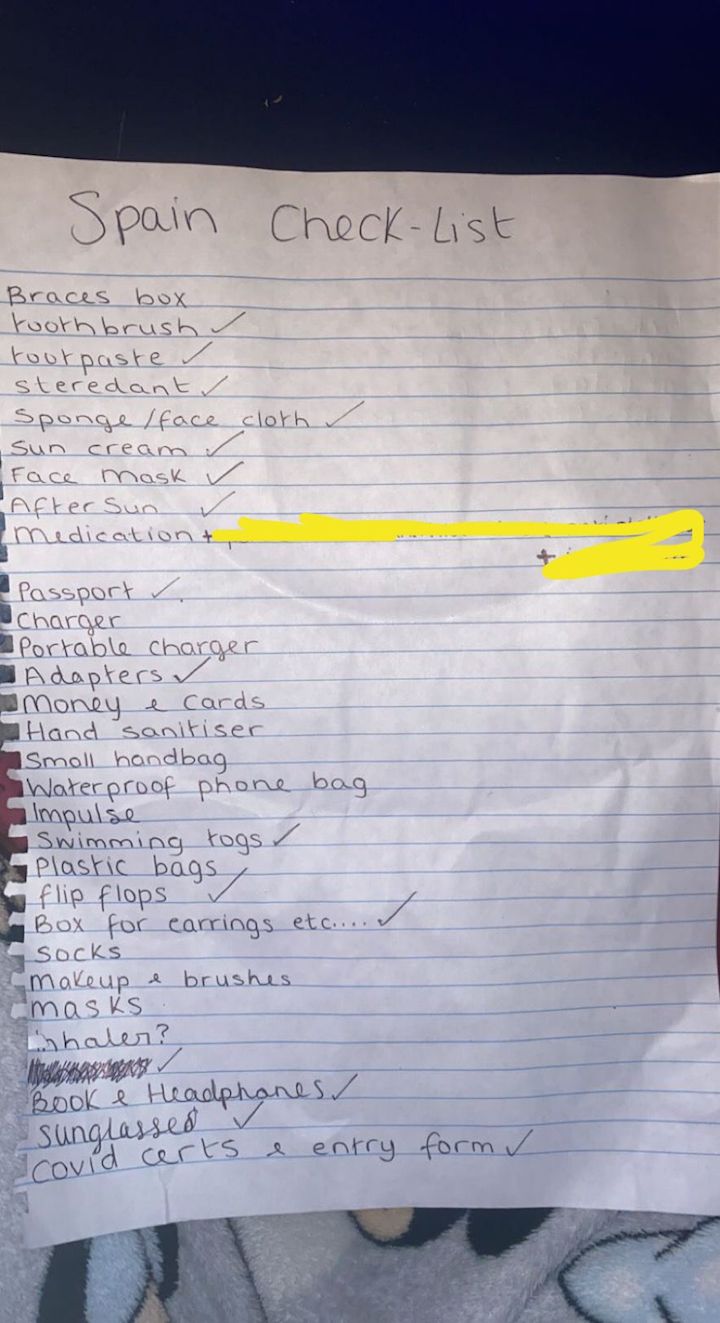 Spain Check-List
Braces box
toothbrush ✓
tootpaste ✓
steredant ✓
Sponge/face cloth ✓
Sun cream ✓
Face mask ✓
After Sun ✓
Medication +
+
Passport ✓.
Charger
Portable charger
Adapters ✓
Money & cards
Hand sanitiser
Small handbag
Waterproof phone bag
Impulse
Swimming togs ✓
Plastic bags
flip flops ✓
Box for earrings etc.... ✓
socks
makeup & brushes
masks
inhaler?
✓
Book & Headphones ✓
sunglasses ✓
covid certs & entry form ✓